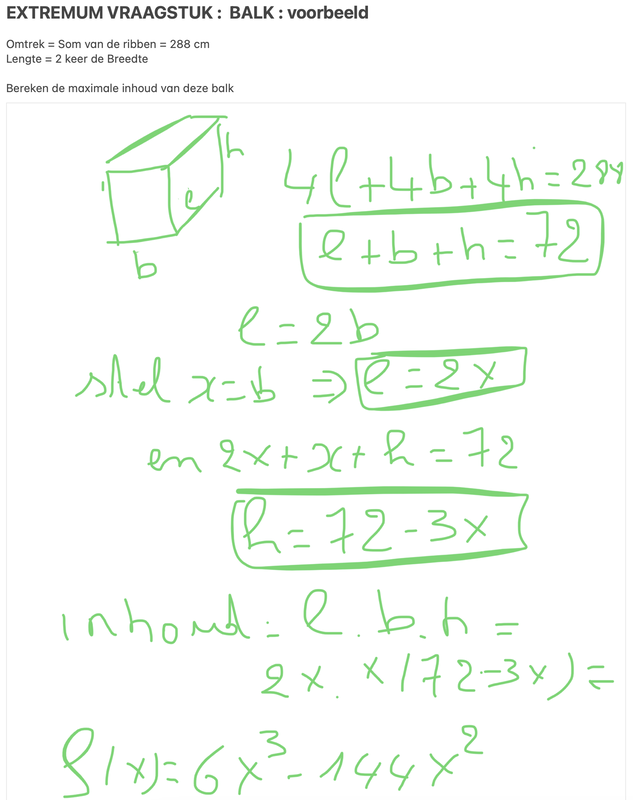 EXTREMUM VRAAGSTUK : BALK : voorbeeld
Omtrek = Som van de ribben = 288 cm
Lengte = 2 keer de Breedte
Bereken de maximale inhoud van deze balk
h
l
b
4l+4b+4h=288
l+b+h=72
l=2b
stel x=b ⇒ l=2x
en 2x+x+h=72
h=72-3x
inhoud: l.b.h=
2x.x(72-3x)=
f(x)=6x³-144x²